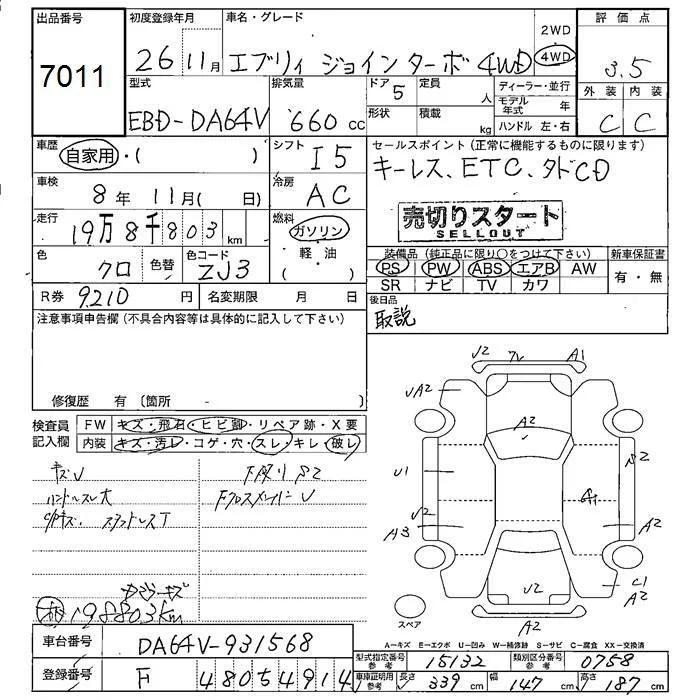 出品番号 初度登録年月 車名・グレード 2WD 評価点
7011 26 11月 エブリィ ジョインターボ 4WD 4WD 3.5
型式 排気量 ドア 定員 ディーラー・並行 外装 内装
EBD-DA64V 660cc 5 人 モデル年式 年 C C
形状 積載 kg ハンドル 左・右
車歴 自家用・( ) シフト I5 セールスポイント(正常に機能するものに限ります)
キーレス、ETC、タドCD
車検 8年 11月( 日) 冷房 AC
売切りスタート
SELLOUT
走行 19万8千803km 燃料 ガソリン 軽・油 ( )
装備品(純正品に限り○をつけて下さい) 新車保証書
色 クロ 色替 色コード ZJ3
PS PW ABS エアB AW 有・無
SR ナビ TV カワ
R券 9210円 名変期限 月 日
後日品
取説
注意事項申告欄(不具合内容等は具体的に記入して下さい)
修復歴 有(箇所 )
検査員記入欄 FW キズ・飛石・ヒビ割・リペア跡・X要
内装 キズ・汚レ・コゲ・穴・スレ・キレ・破レ
キズU
ハンドルスレ大
198803km
車台番号 DA64V-931568
登録番号 F 48054914
U2 A1
UA2
A2
U1
U2
A3
A2
U2
C1
A2
A2
スペア
A=キズ E=エクボ U=凹み W=補修跡 S=サビ C=腐食 XX=交換済
型式指定番号 参考 15132 類別区分番号 参考 0758
車庫証明用 参考 長さ 339cm 幅 147cm 高さ 187cm